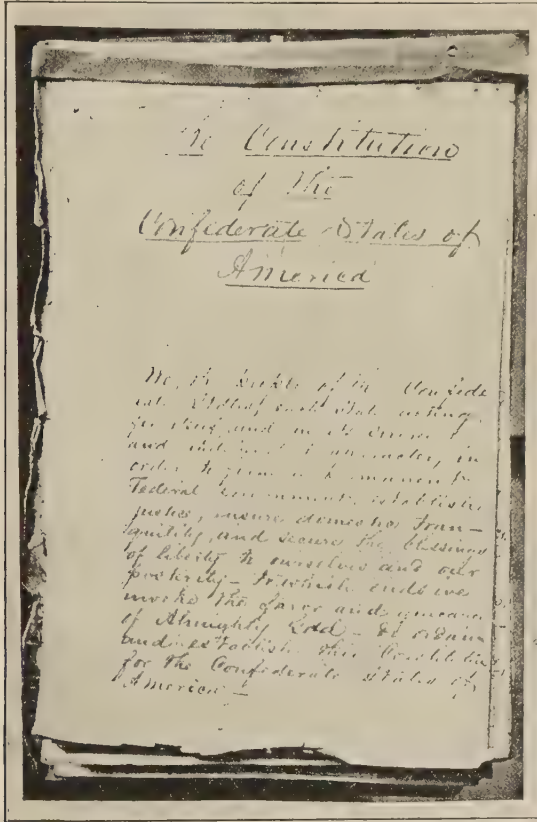 The Constitution
of the
Confederate States of
America
We, the people of the Confede
rate States, each State acting
for itself, and in its
and character, in
order to form a permanent
Federal Government, establish
justice, insure domestic Tran-
quility, and secure the blessings
of liberty to ourselves and our
posterity - to which ends we
invoke the favor and
of Almighty God - do ordain
and establish this Constitution
for the Confederate States of
America -